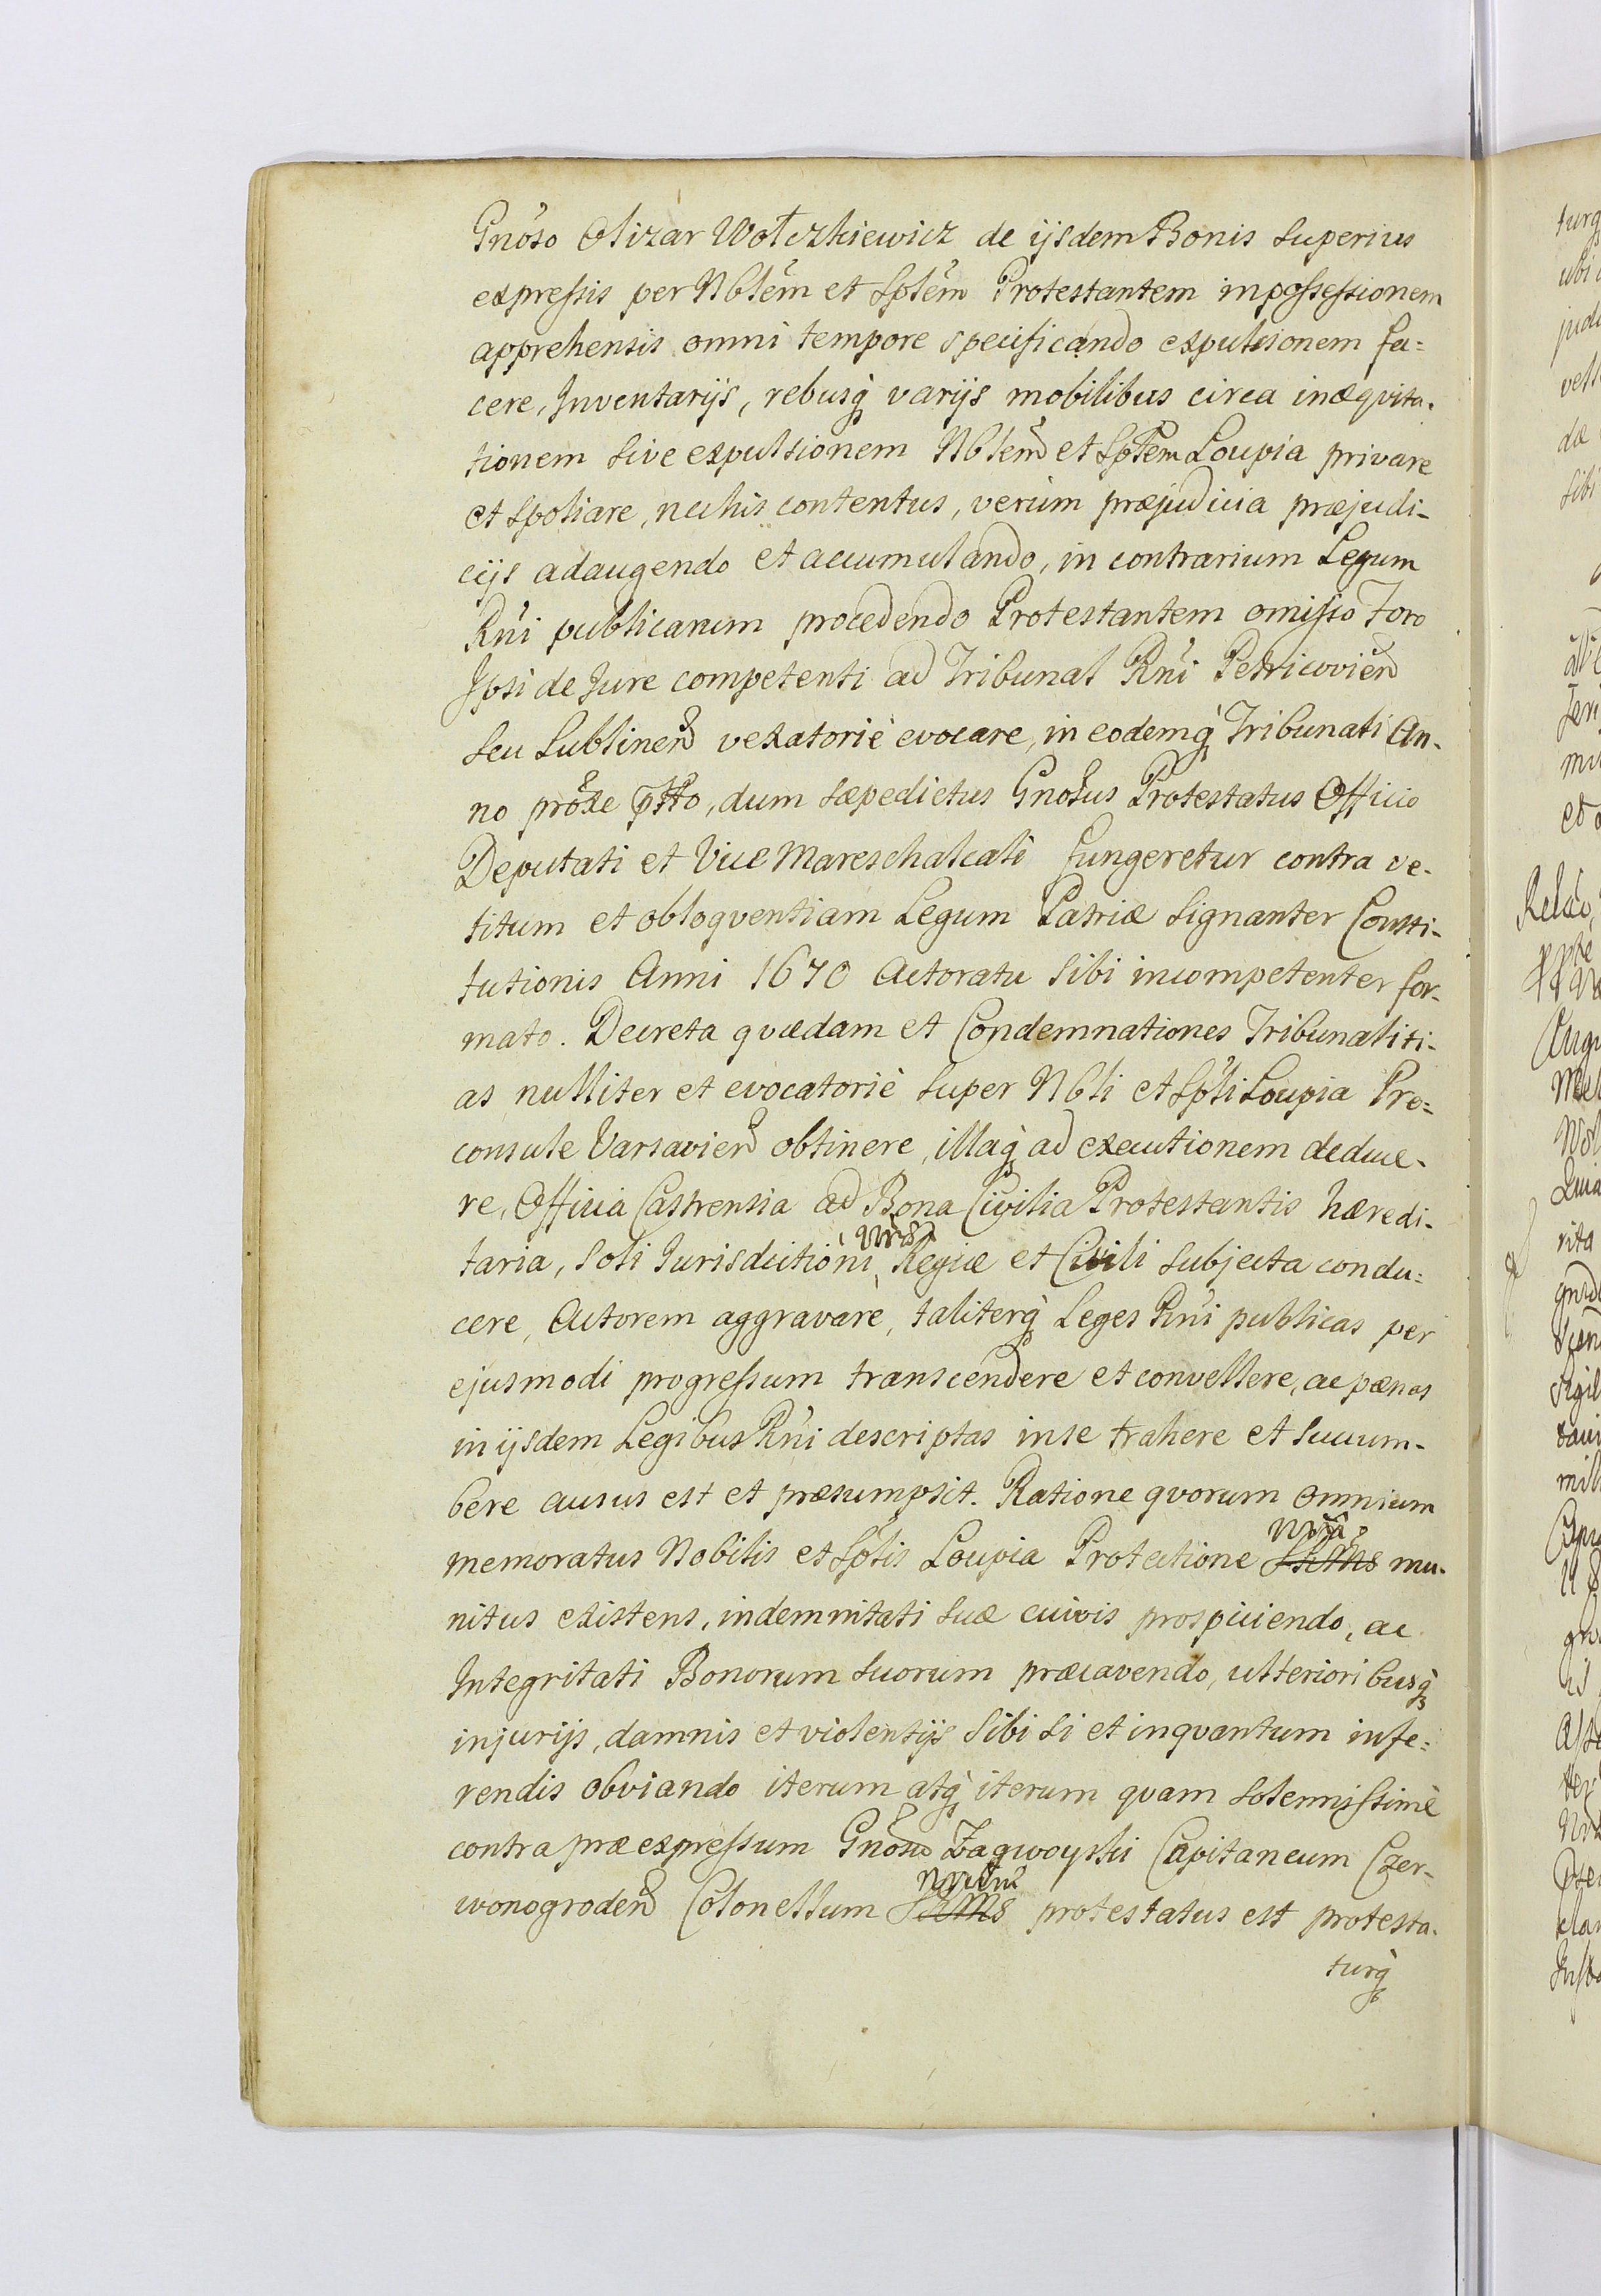 Gnoso Olizar Wołczkiewicz de ijsdem Bonis superius
expressis per Nblem et Sptem Protestantem in possessionem
apprehensis omni tempore specificando expulsionem fa=
cere, Inventarijs, rebusq varijs mobilibus circa inæqvita-
tionem sive expulsionem Nblem et Sptem Loupia privare
et spoliare, nec his contentus, verùm præjudicia præjudi-
cijs adaugendo et accumulando, in contrarium Legum
Rni publicarum procedendo Protestantem omisso Foro
Ipsi de Jure competenti ad Tribunal Rni Petricovien
seu Lublinen vexatoriè evocare, in eodemq Tribunali An-
no proxe ptto, dum sæpedictus Gnosus Protestatus Officio
Deputati et Vice Mareschalcali fungeretur contra ve-
titum et obloqventiam Legum Patriæ signanter Consti-
tutionis Anni 1670 Actoratu sibi incompetenter for-
mato. Decreta qvædam et Condemnationes Tribunaliti-
as nulliter et evocatoriè super Nbli et Spli Loupia Pro=
consule Varsavien obtinere, illaq ad executionem deduce-
re, Officia Castrensia ad Bona Civilia Protestantis hæredi-
taria, soli Jurisdictioni Regiæ et Civili subjecta condu=
cere, Actorem aggravare, taliterq Leges Rni publicas per
ejusmodi progressum transcendere et convellere, ac pænas
in ijsdem Legibus Rni descriptas in se trahere et succum-
bere ausus est et præsumpsit. Ratione qvorum omnium
memoratus Nobilis et Sptis Loupia Protectione nra mu-
nitus existens, indemnitati suæ cuivis prospiciendo, ac
Integritati Bonorum suorum præcavendo, ulterioribusq
injurijs, damnis et violentijs sibi si et inqvantum infe=
rendis obviando iterum atq iterum qvam solennissimè
contra præexpressum Gnosum Zagwoyski Capitaneum Czer-
wonogroden Colonellum nrum protestatus est protesta-
turq